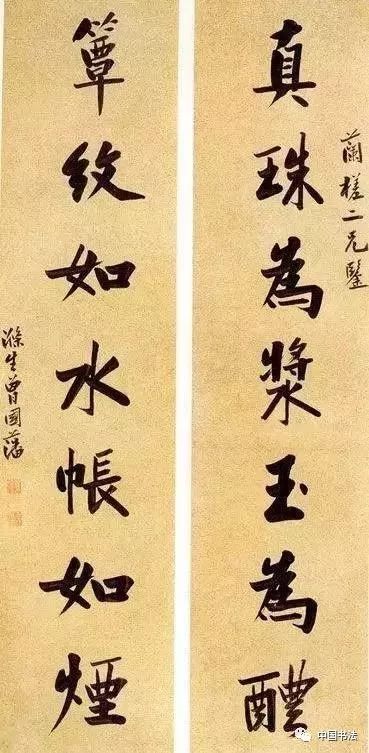 真珠為漿玉為醴
蘭槎二兄鑒
簟紋如水帳如煙
滌生曾國藩
中国书法